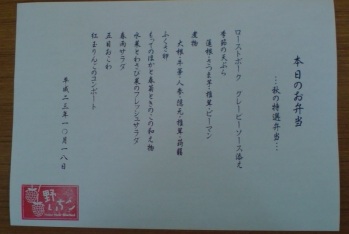 本日のお弁当
…秋の特選弁当…
ローストポーク グレービーソース添え
季節の天ぷら
蓮根・さつま芋・椎茸・ピーマン
煮物
大根・牛蒡・人参・隠元・椎茸・蒟蒻
ふくさ卵
もっての他かと春菊ときのこの和え物
水菜とわさび菜のフレッシュサラダ
春雨サラダ
豆目おこわ
紅玉りんごのコンポート
平成二三年一〇月一八日